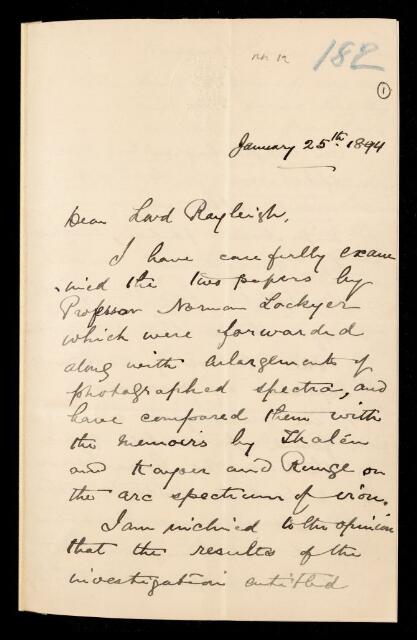 182
1
January 25th 1894
Dear Lord Rayleigh,
I have carefully exam
-ined the two papers by
Professor Norman Lockyer
which were forwarded
along with enlargements of
photographed spectra, and
have compared them with
the memoirs by Thalén
and Kayser and Runge on
the arc spectrum of iron.
I am inclined to the opinion
that the results of the
investigation entitled